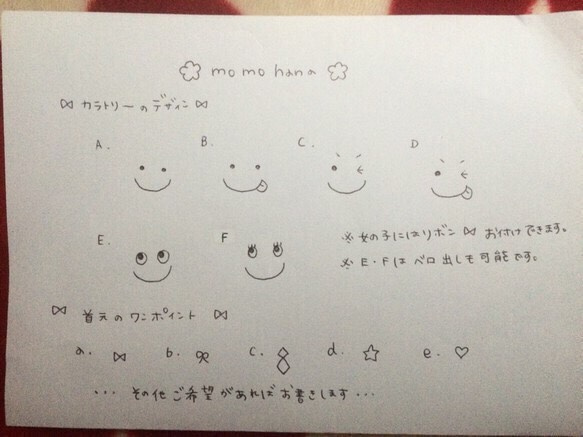 momohana
カラトリーのデザイン
A. B. C. D
E. F ※女の子にはリボン お付けできます。
※E・Fは ベロ出しも可能です。
首元のワンポイント
a. b. c. d. e.
・・・その他ご希望があればお書きします・・・